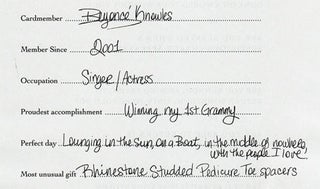 Cardmember Beyoncé Knowles
Member Since 2001
Occupation Singer/Actress
Proudest accomplishment Winning my 1st Grammy
Perfect day Lounging in the sun, on a Boat, in the middle of nowhere,
with the people I love
Most unusual gift Rhinestone Studded Pedicure Toe spacers